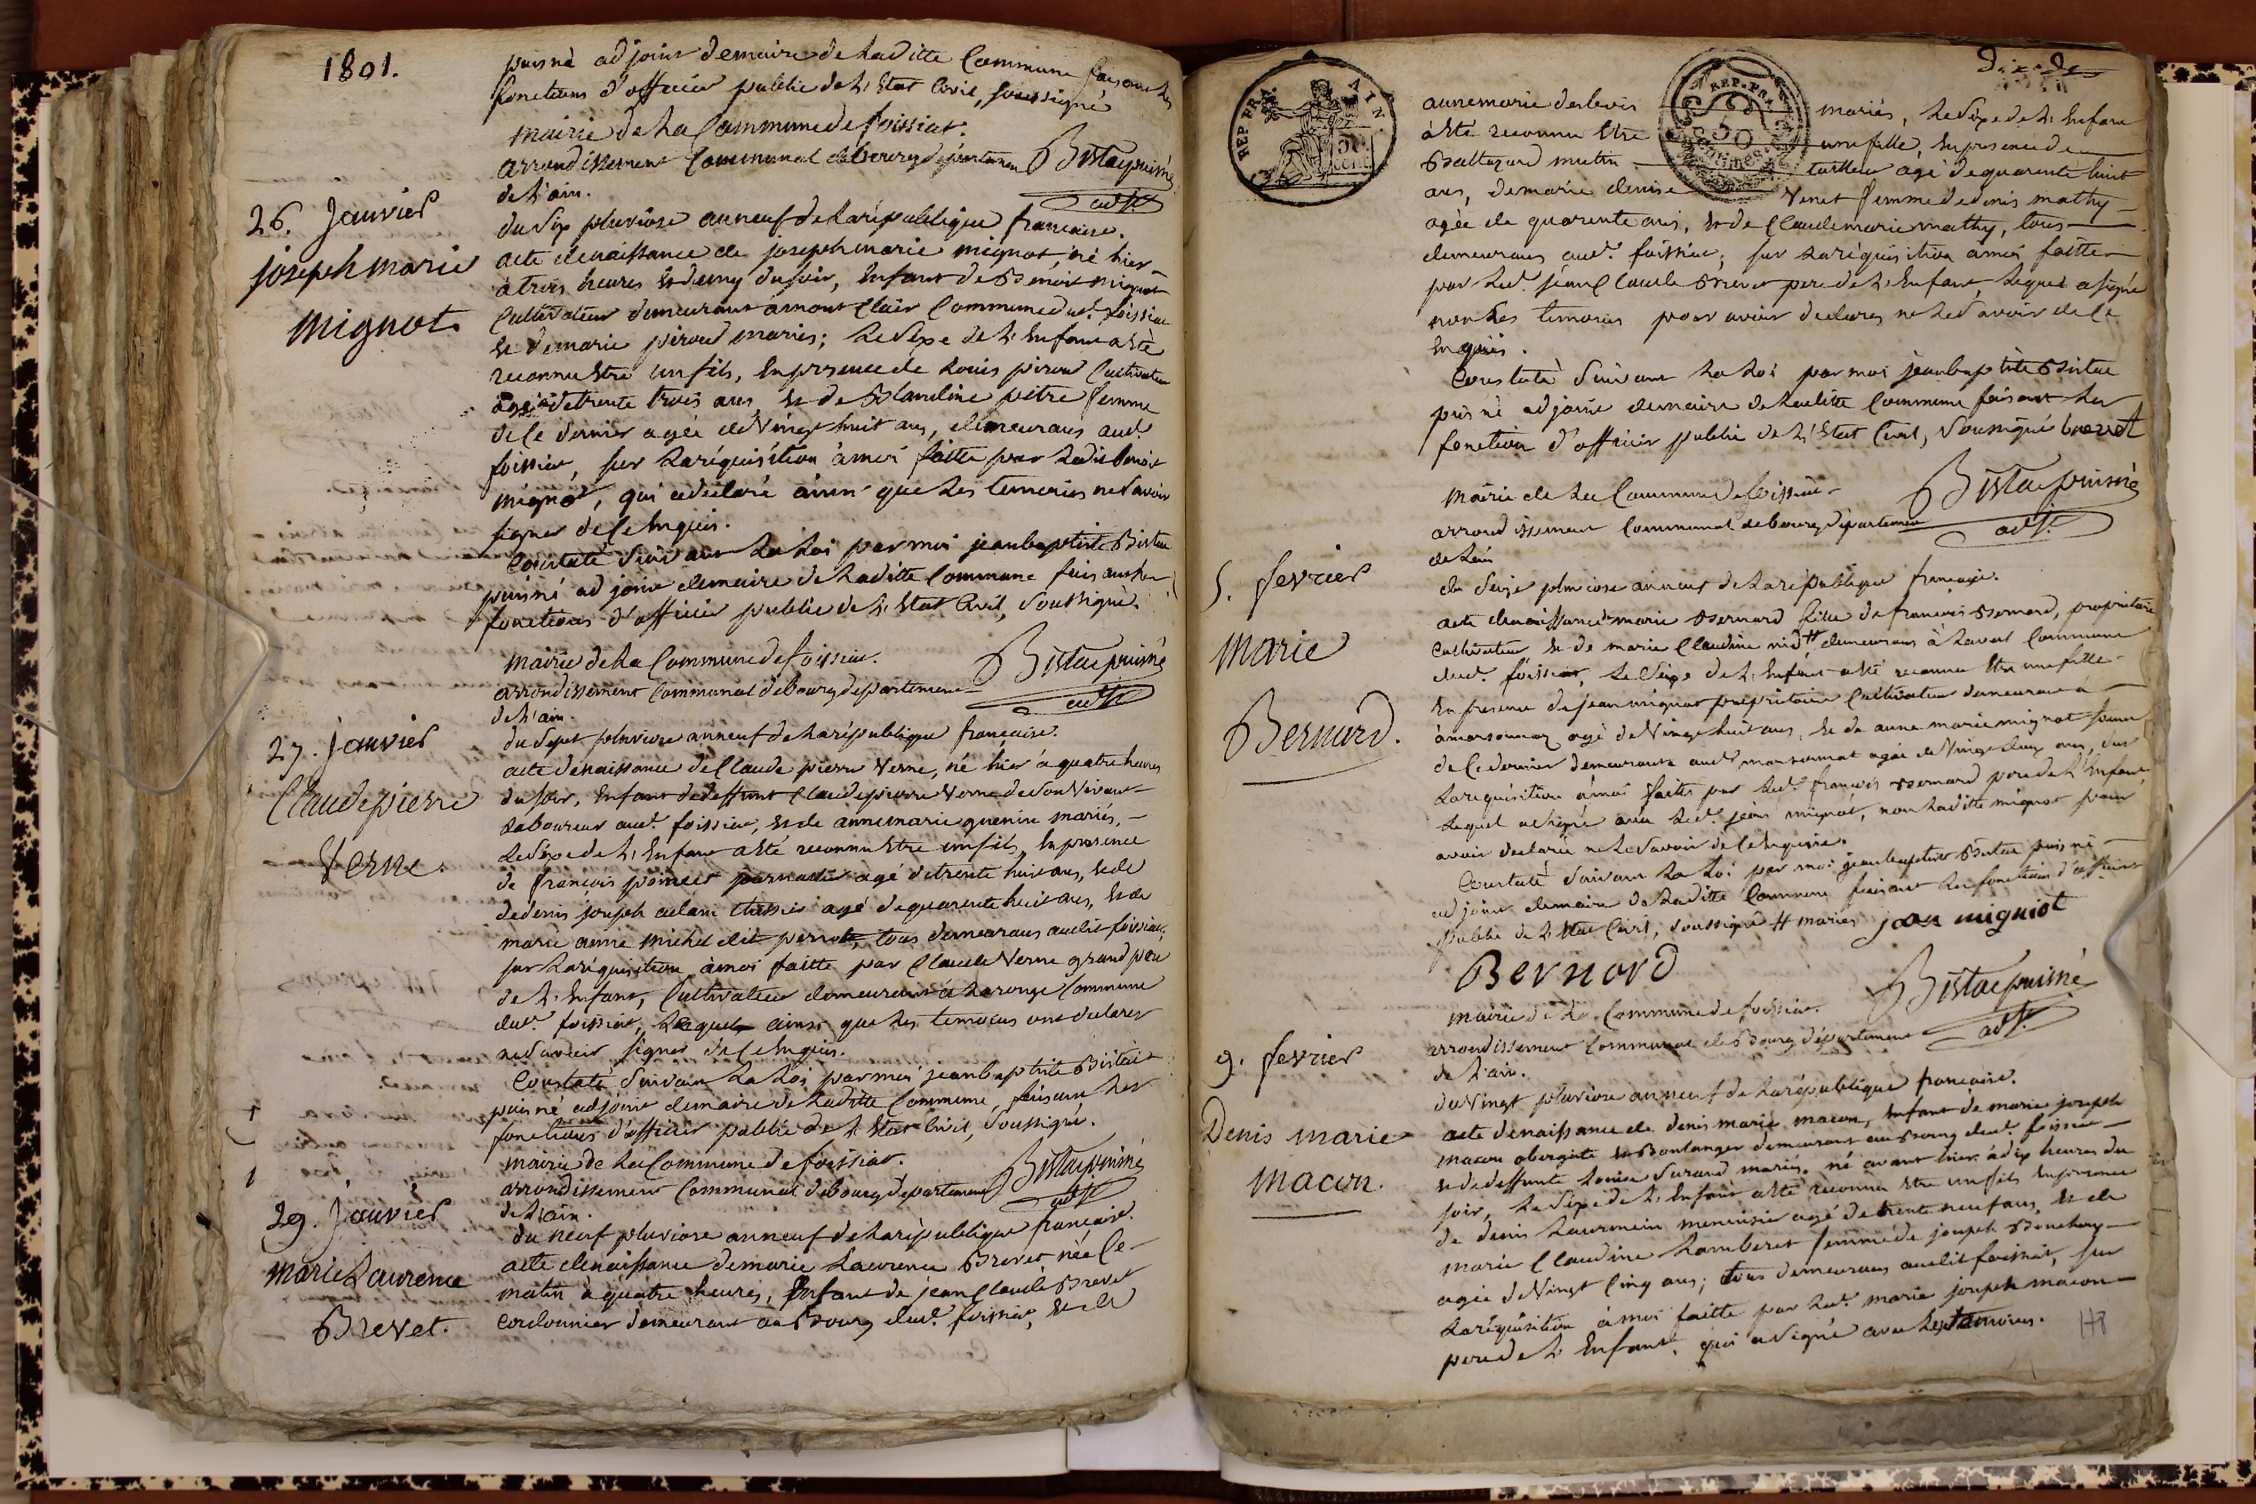 1801.
puisné adjoint demaire de Laditte Commune faisant les
fonctions d'officier public de L'Etat Civil, soussigné
Mairie de La Commune de foissiat.
arrondissement Communal debourg departement Bistac puisné
de L'ain. adjt.
26. Janvier
joseph marie
Mignot.
du Six pluviose anneuf de La république francaise.
acte denaissance de joseph marie mignot, né hier
à trois heures & demy du soir, Enfant de Benoit mignot
Cultivateur demeurant amont Clair Commune dud. foissiat
& de marie piroud mariés; Le Sexe de L'Enfant a Eté
reconnu Etre un fils, En presence de Louis piroud Cultivateur
agé de trente trois ans & de Blandine pitre femme
de Ce dernier agée de Vingt huit ans, demeurans aud.
foissiat, sur Laréquisition à moi faitte par Ledit benoit
mignot, qui a declaré ainsi que Les temoins ne Savoir
signer de Ce Enquis.
Constaté Suivant La Loi par moi jean baptiste Bistac
puisné adjoint demaire de Laditte Commune faisant les
fonctions d'officier public de L'Etat Civil, Soussigné.
Mairie de La Commune de foissiat. Bistac puisné
arrondissement Communal debourg departement adjt.
de L'ain.
27. Janvier
Claude pierre
Verne.
du Sept pluviose anneuf de La république francaise.
acte denaissance de Claude pierre Verne, né hier à quatre heures
du soir, Enfant de deffunt Claude pierre Verne de Son Vivant
Laboureur aud. foissiat, & de anne marie guenin mariés,
Le Sexe de L'Enfant a Eté reconnu Etre un fils, En presence
de françois agé de trente huit ans, & de
de denis joseph adam agé de quarente huit ans, & de
marie anne Michel dit perrot, tous demeurans audit foissiat,
sur La réquisition à moi faitte par Claude Verne grand pere
de L'Enfant, Cultivateur demeurant à Commune
dud. foissiat, Lequel ainsi que Les temoins ont declaré
ne Savoir signer de Ce Enquis.
Constaté Suivant La Loi par moi jean baptiste Bistac
puisné adjoint demaire de Laditte Commune, faisant les
fonctions d'officier public de L'Etat Civil, Soussigné.
Mairie de La Commune de foissiat. Bistac puisné
arrondissement Communal debourg departement adjt.
de L'ain.
29. Janvier
Marie Laurence
Brevet.
du neuf pluviose anneuf de La république francaise.
acte denaissance de marie Laurence Brevet née Ce
matin à quatre heures, Enfant de jean Claude Brevet
Cordonnier demeurant au Bourg dud. foissiat, & de
REP. FRA. AIN
50 cent.
REP. FRA.
50
centimes
anne marie mariés, Le Sexe de L'Enfant
à Eté reconnu Etre une fille, En presence de
Balthazard mutin tailleur agé de quarente huit
ans, de marie denise Venet femme de denis mathy
agée de quarente ans, & de Claude marie mathy, tous
demeurans aud. foissiat, sur La réquisition à moi faitte
par Led. jean Claude Brevet pere de L'Enfant, Lequel a signé
non Les temoins pour avoir declarés ne Le Savoir de Ce
Enquis.
Constaté Suivant La Loi par moi jean baptiste Bistac
puisné adjoint demaire de Laditte Commune faisant les
fonction d'officier public de L'Etat Civil, Soussigné brevet
Mairie de La Commune de foissiat. Bistac puisné
arrondissement Communal debourg departement adjt.
de Lain
5. fevrier
Marie
Bernard.
du Seize pluviose anneuf de La république francaise.
acte denaissance marie Bernard fille de francois Bernard, proprietaire
Cultivateur & de marie Claudine # demeurans à Laval Commune
dud. foissiat, Le Sexe de L'Enfant a Eté reconnu Etre une fille
En presence de jean mignot propriétaire Cultivateur demeurant à
à marsonnaz agé de Vingt huit ans, & de anne marie mignot femme
de Ce dernier demeurante aud. marsonnat agée de Vingt deux ans, Sur
La requisition à moi faitte par Led. francois Bernard pere de L'Enfant
Lequel a signé avec Led. jean mignot, non Laditte mignot pour
avoir declarée ne Le Savoir de Ce Enquise.
Constaté Suivant La Loi par moi jean baptiste Bistac puisné
adjoint demaire de Laditte Commune faisant Les fonctions d'officier
public de L'Etat Civil, Soussigné # mariés jan migniot
Bernord
Mairie de La Commune de foissiat. Bistac puisné
arrondissement Communal de Bourg département adjt.
de L'ain.
9. fevrier
Denis marie
Macon.
du Vingt pluviose anneuf de La république francaise.
acte denaissance de denis marie macon, Enfant de marie joseph
macon obergiste & Boulanger demeurant au Bourg dud. foissiat
& de deffunte Louise Durand mariés, né avant hier à dix heures du
soir, Le Sexe de L'Enfant a Eté reconnu Etre un fils En presence
de denis Laurencin menuisier agé de trente neuf ans, & de
marie Claudine Lamberet femme de joseph Bouchoux
agée de Vingt Cinq ans; tous demeurans audit foissiat, sur
La réquisition à moi faitte par Led. marie joseph macon
pere de L'Enfant, qui a signé avec Les temoins. 148